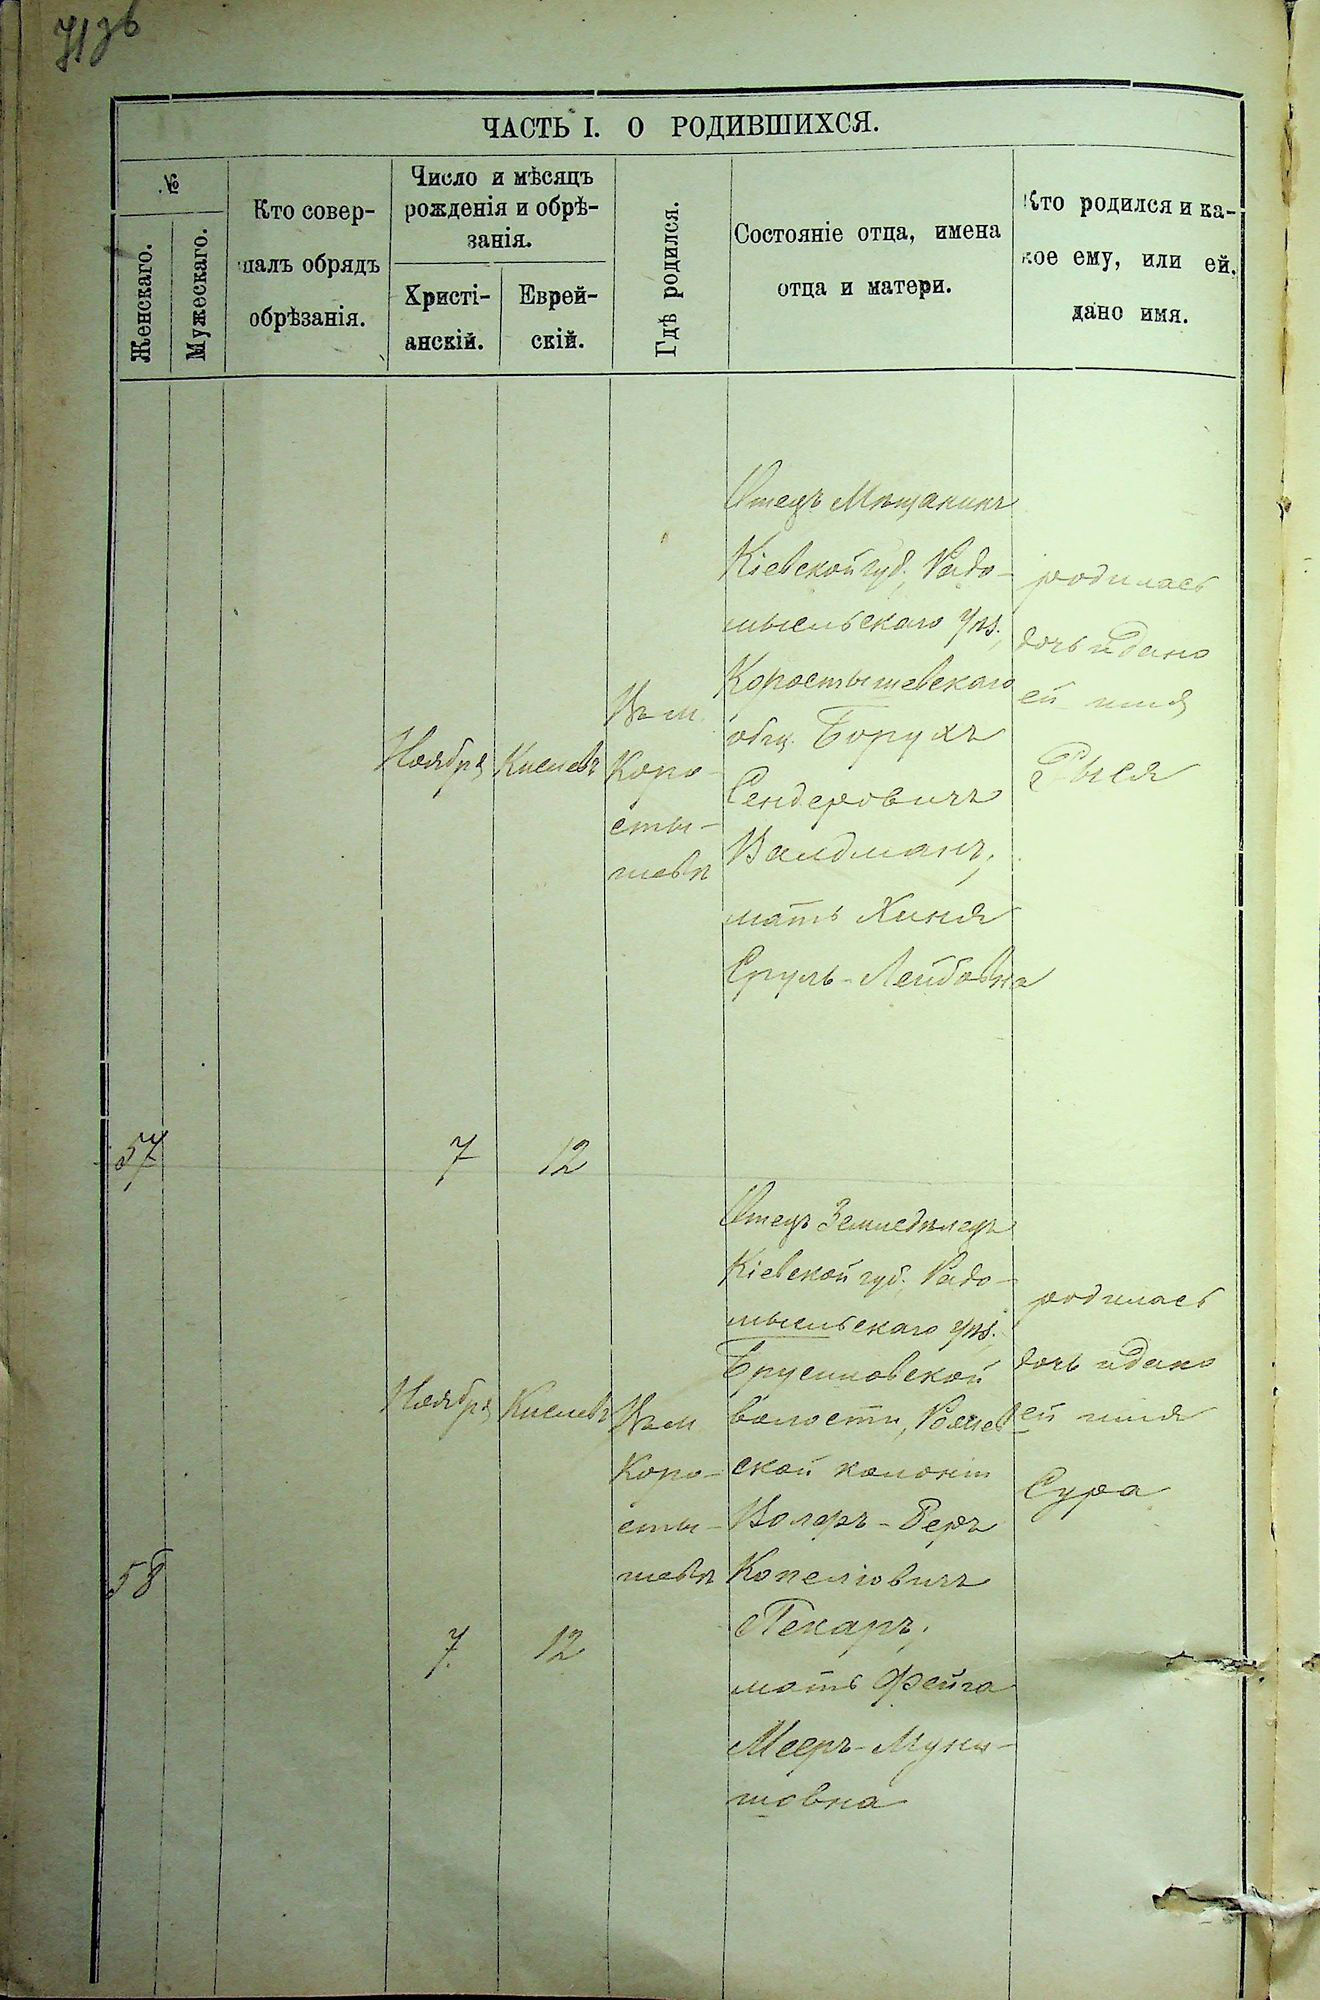 ЧАСТЬ I. О РОДИВШИХСЯ.
№
Женскаго.
Мужескаго.
Кто совер-
шалъ обрядъ
обрѣзанія.
Число и мѣсяцъ
рожденія и обрѣ-
занія.
Христі-
анскій.
Еврей-
скій.
Гдѣ родился.
Состояніе отца, имена
отца и матери.
Кто родился и ка-
кое ему, или ей,
дано имя.
57
Ноября
7
Кислевъ
12
Въ м.
Коро-
сты-
шевѣ
Отецъ Мѣщанинъ
Кіевской губ., Радо-
мысльскаго уѣз.,
Коростышевскаго
общ. Борухъ
Сендеровичъ
Валдманъ,
мать Хиня
Сруль-Лейбовна
родилась
дочь и дано
ей имя
Рыся
58
Ноября
7
Кислевъ
12
Въ м.
Коро-
сты-
шевѣ
Отецъ Земледѣлецъ
Кіевской губ., Радо-
мысльскаго уѣз.
Брусиловской
волости,
ской колоніи
Копелювичъ
Пекаръ,
мать Фейга
Мееръ-
родилась
дочь и дано
ей имя
Сура